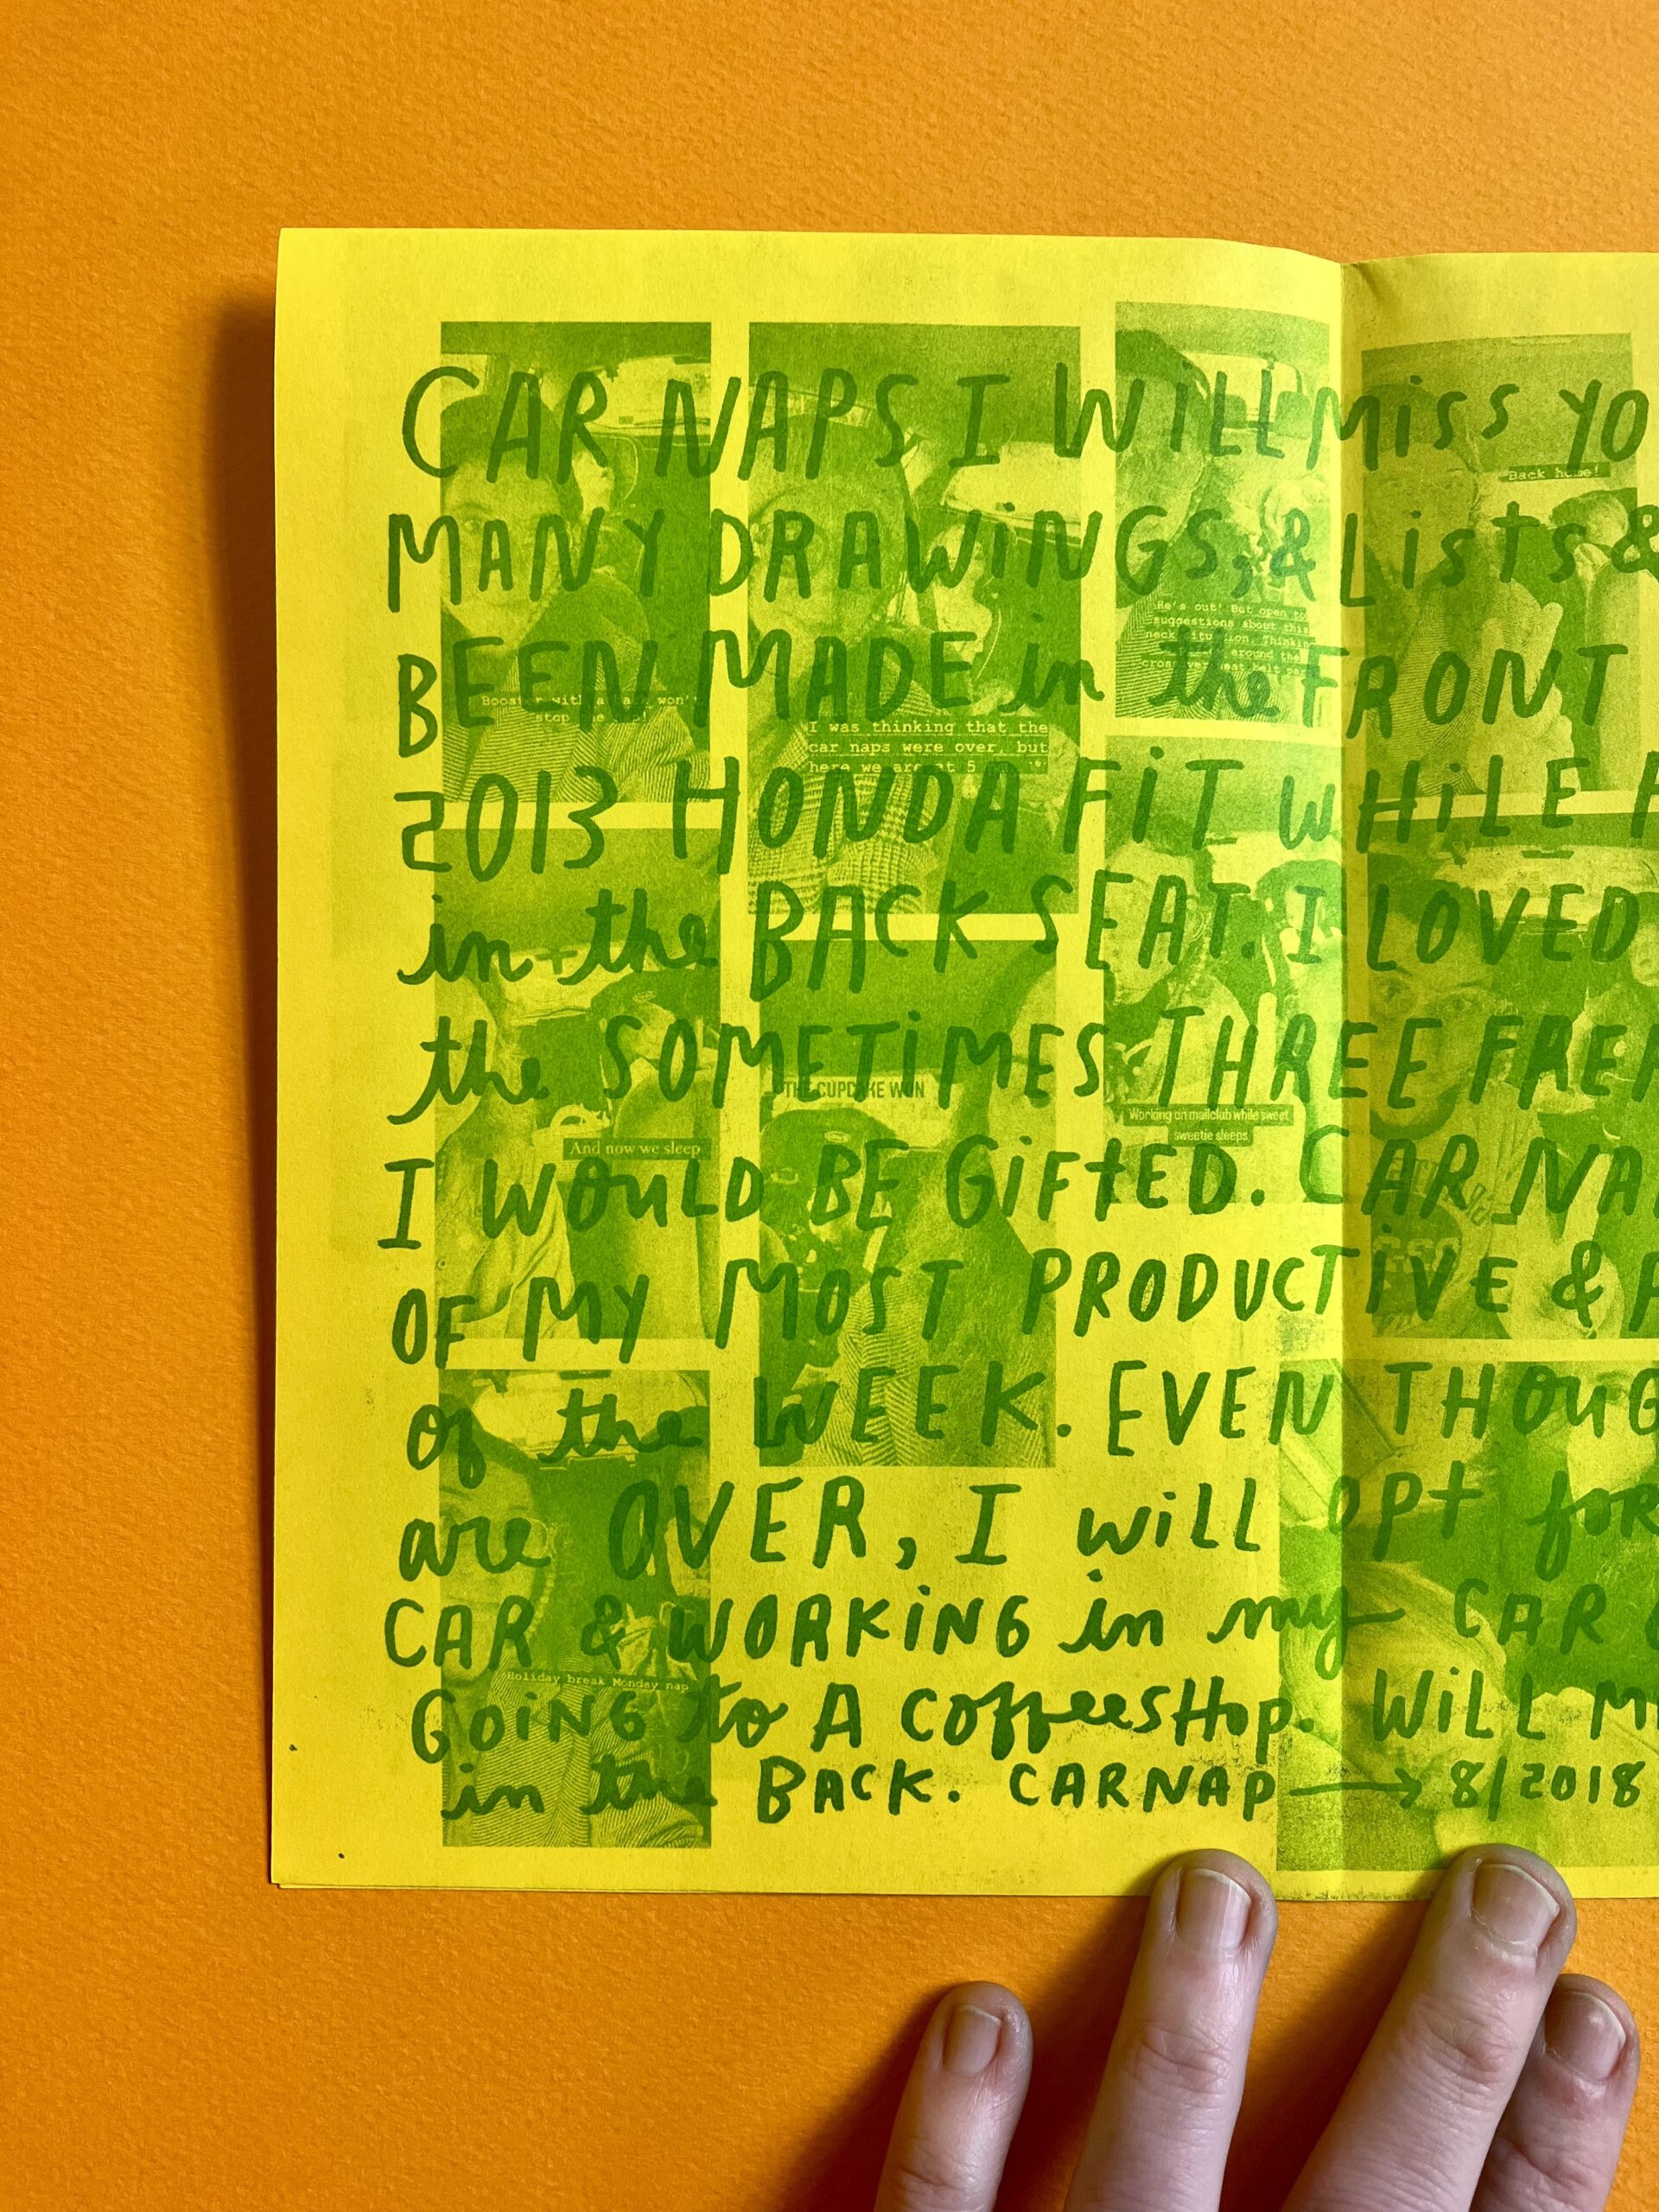 CAR NAPS I WILL MISS YO
MANY DRAWINGS, & Lists &
BEEN MADE in the FRONT
2013 HONDA FIT WHILE
in the BACK SEAT. I LOVED
the SOMETIMES THREE FREE
I WOULD BE GIFTED. CAR NA
OF MY MOST PRODUCTIVE &
of the WEEK. EVEN THOUG
are OVER, I will opt for
CAR & WORKING in my CAR
GOING to A coffeesHop. WILL MI
in the BACK. CARNAP → 8/2018
Booster with a back won't
stop the nap!
I was thinking that the
car naps were over, but
here we are at 5
He's out! But open to
suggestions about this
neck situation. Thinkin
around the
crossover seat belt
Back home!
And now we sleep
THE CUPCAKE WON
Working on mailclub while sweet
sweetie sleeps
Holiday break Monday nap